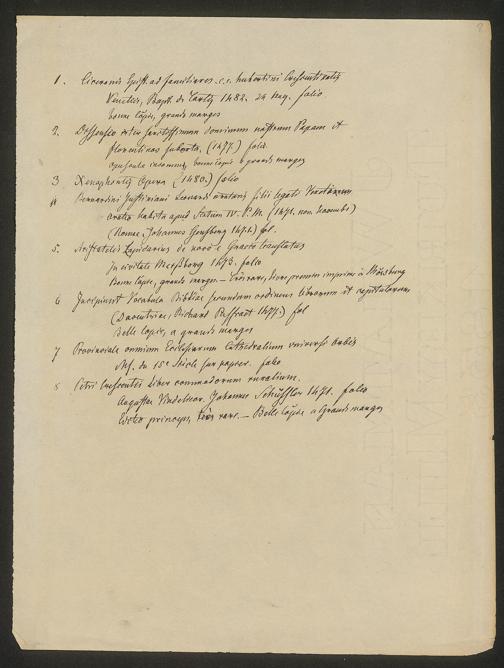 1. Ciceronis Epist. ad familiares. c. c. hubertini Crescentinatis
Venetiis, Bapt. de Tortis 1482. 24 May. folio
bonne copie, grands marges
2. Dissensio inter sanctissimum dominum nostrum Papam et
Florentinos suborta. (1477.) folio
opuscule inconnu, bonne copie à grands marges
3 Xenophontis Opera (1480.) folio
4 Bernardini Justiniani Leonardi oratoris filii legati Venetorum
oratio habita apud Sixtum IV. P. M. (1471. non Decembr)
(Romae, Johannes Gensberg 1474.) fol.
5. Aristotelis Lapidarius de novo e Graeco translatus
In civitate Merssborg 1473. folio
Bonne copie, grands marges — livre rare, premier imprimé à Mörsburg
6 Incipiunt Vocabula Bibliae secundum ordinem librorum et capitulorum
(Daventriae, Richard Paffroet 1477.) fol
Belle copie, a grands marges
7 Provinciale omnium Ecclesiarum Cathedralium universi orbis
Mſ. du 15e Siècle sur papier. folio
8 Petri Crescentii Liber commodorum ruralium.
Augustae Vindelicor. Johannes Schüssler 1471. folio
Editio princeps, très rare. — Belle Copie a Grands marges